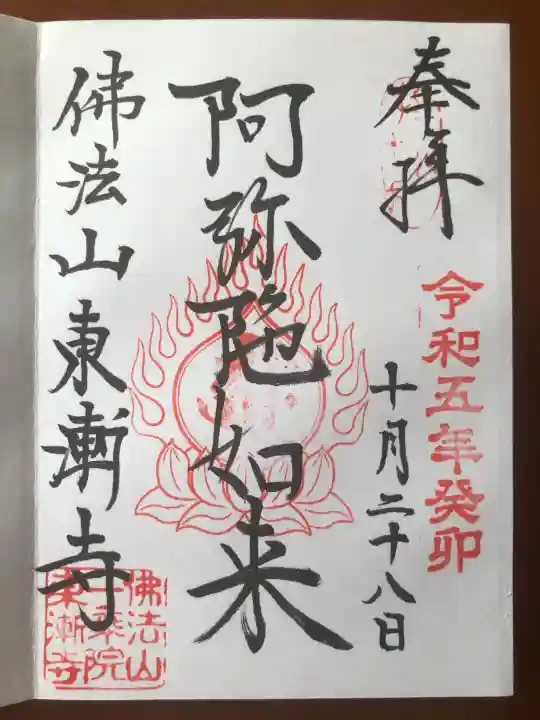 奉拝
令和五年癸卯
十月二十八日
阿弥陀如来
佛法山東漸寺
佛法山
一乗院
東漸寺